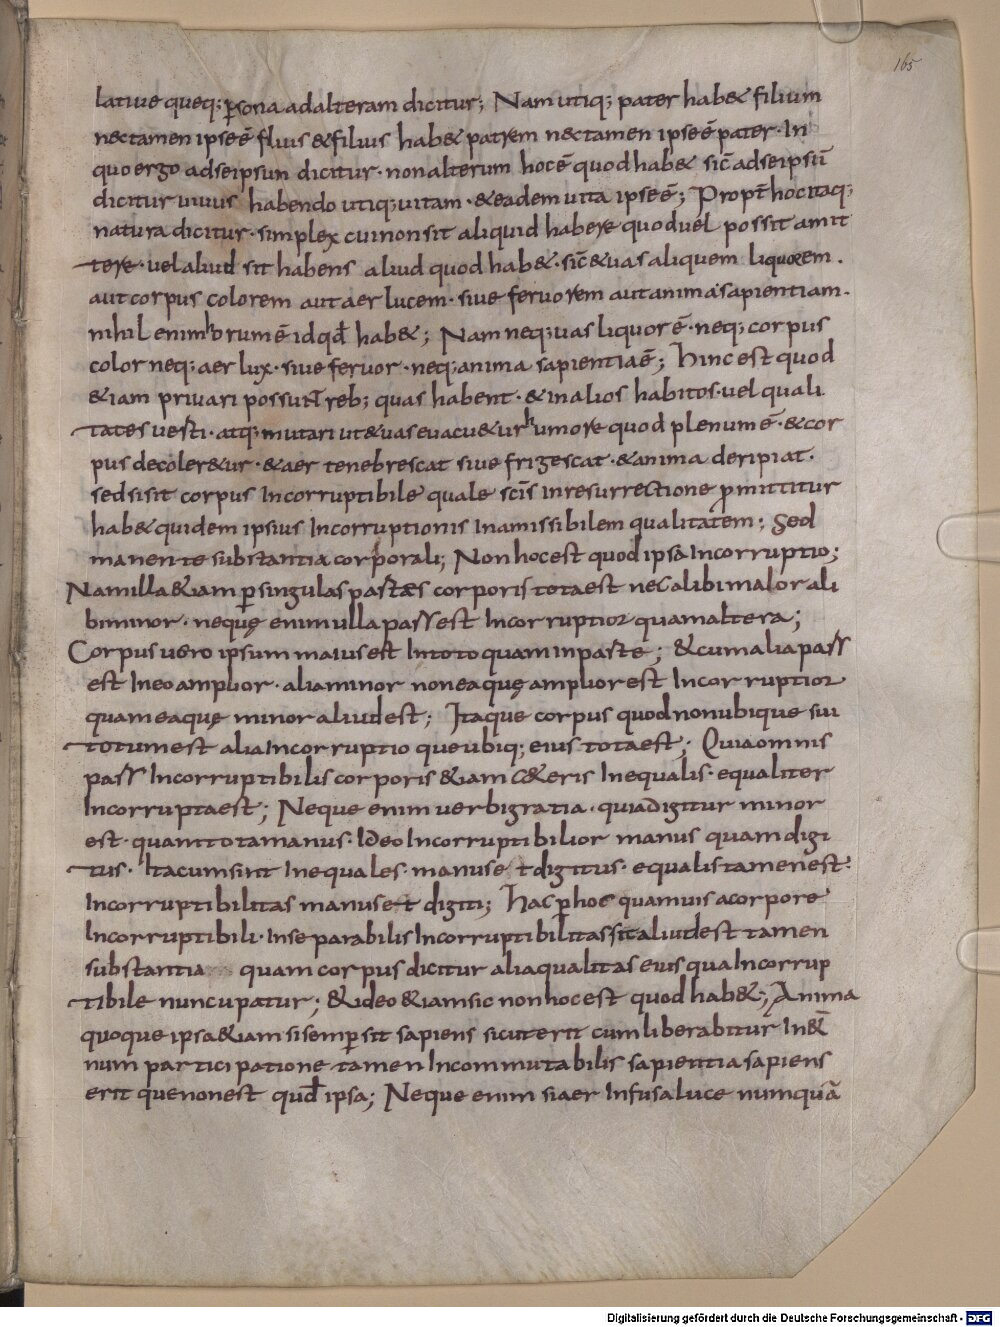 165
latiue queq; ꝑsona ad alteram dicitur; Nam utiq; pater hab& filium
nec tamen ipse ē filius & filius hab& patrem nec tamen ipse ē pater· In
quo ergo ad seipsum dicitur· non alterum hoc ē quod hab& sic̄ ad seipsū
dicitur uiuus habendo utiq; uitam· & eadem uita ipse ē; Propt̄ hoc itaq;
natura dicitur· simplex cui non sit aliquid habere quod uel possit amit
tere· uel aliud sit habens aliud quod hab&· sic̄ & uas aliquem liquorem·
aut corpus colorem aut aer lucem· siue feruorem aut anima sapientiam·
nihil enim horum ē id qđ hab&; Nam neq; uas liquor ē· neq; corpus
color neq; aer lux· siue feruor· neq; anima sapientia ē; hinc est quod
&iam priuari possunt reb; quas habent· & in alios habitos· uel quali
tates uesti· atq; mutari ut & uas euacu&ur humore quod plenum ē· & cor
pus decoler&ur· & aer tenebrescat siue frigescat· & anima deripiat·
sed si sit corpus Incorruptibile quale sc̄is in resurrectione ꝑmittitur
hab& quidem ipsius Incorruptionis Inamissibilem qualitatem; Sed
manente substantia corporali; Non hoc est quod ipsa Incorruptio;
Nam illa &iam ꝑ singulas partes corporis tota est nec alibi maior ali
bi minor· neque enim ulla pars est Incorruptior quam altera;
Corpus uero ipsum maius est In toto quam in parte; & cum alia pars
est In eo amplior· alia minor non ea quę amplior est Incorruptior
quam ea quę minor aliud est; Itaque corpus quod non ubique sui
totum est alia Incorruptio que ubiq; eius tota est; Quia omnis
pars Incorruptibilis corporis &iam c&eris Inequalis· equaliter
Incorrupta est; Neque enim uerbi gratia· quia digitur minor
est· quam tota manus· Ideo Incorruptibilior manus quam digi
tus· Ita cum sint Inequales· manus et digitus· equalis tamen est·
Incorruptibilitas manus et digiti; hac ꝑ hoc quamuis a corpore
Incorruptibili· Inseparabilis Incorruptibilitas sit aliud est tamen
substantia quam corpus dicitur alia qualitas eius qua Incorrup
tibile nuncupatur; & ideo &iam sic non hoc est quod hab&; Anima
quoque ipsa &iam si semꝑ sit sapiens sicut erit cum liberabitur In &
num participatione tamen Incommutabilis sapientia sapiens
erit que non est quđ ipsa; Neque enim si aer Infusa luce numquā
Digitalisierung gefördert durch die Deutsche Forschungsgemeinschaft - DFG